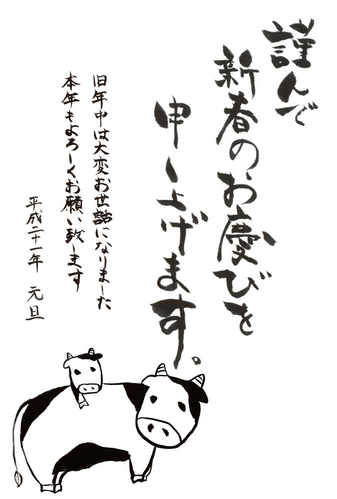 謹んで
新春のお慶びを
申し上げます。
旧年中は大変お世話になりました
本年もよろしくお願い致します
平成二十一年 元旦